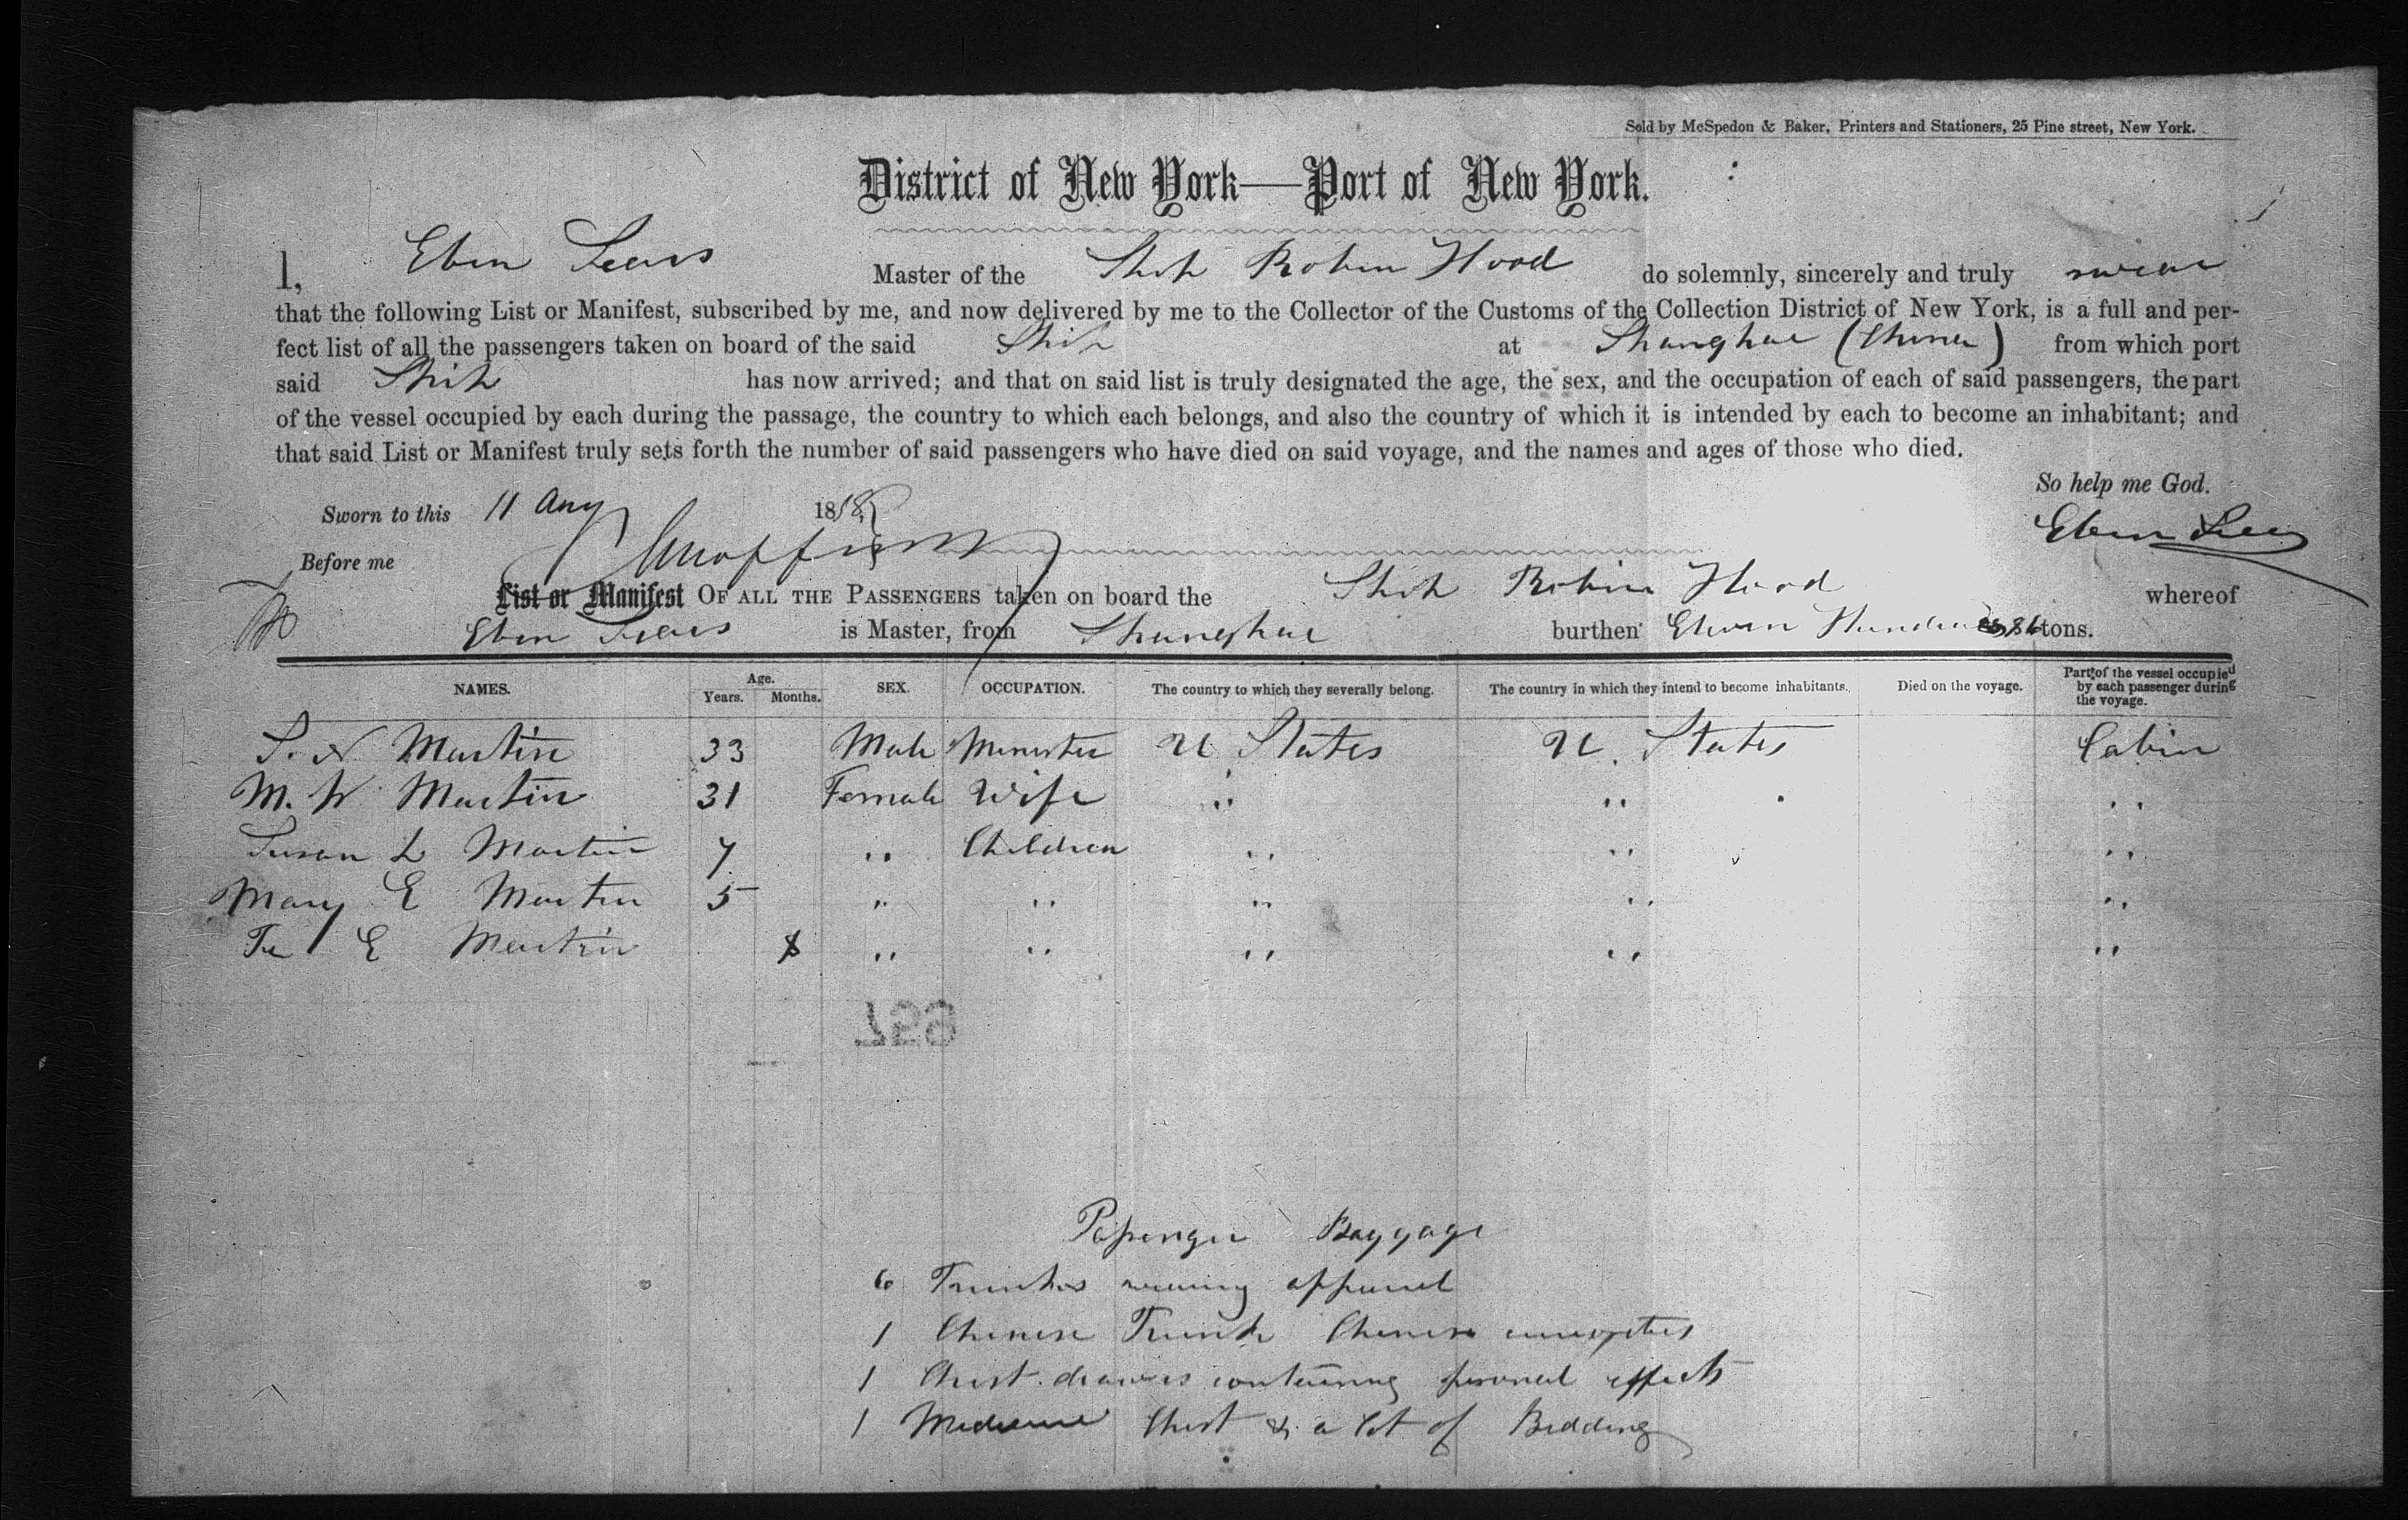 Sold by McSpedon & Baker, Printers and Stationers, 25 Pine street, New York.
District of New York—Port of New York.
I, Eben Sears Master of the Ship Robin Hood do solemnly, sincerely and truly swear
that the following List or Manifest, subscribed by me, and now delivered by me to the Collector of the Customs of the Collection District of New York, is a full and per-
fect list of all the passengers taken on board of the said Ship at Shanghae (China) from which port
said Ship has now arrived; and that on said list is truly designated the age, the sex, and the occupation of each of said passengers, the part
of the vessel occupied by each during the passage, the country to which each belongs, and also the country of which it is intended by each to become an inhabitant; and
that said List or Manifest truly sets forth the number of said passengers who have died on said voyage, and the names and ages of those who died.
So help me God.
Sworn to this 11 Aug 1858
Eben Sears
Before me
List or Manifest OF ALL THE PASSENGERS taken on board the Ship Robin Hood whereof
Eben Sears is Master, from Shanghae burthen Eleven Hundred tons.
NAMES. Age. Years. Months. SEX. OCCUPATION. The country to which they severally belong. The country in which they intend to become inhabitants. Died on the voyage. Part of the vessel occupied by each passenger during the voyage.
S. N Martin 33 Male Minister U. States U. States Cabin
M. W Martin 31 Female Wife " " "
Susan L Martin 7 " Children " " "
Mary E Martin 5 " " " " "
E Martin " " " " "
657
Passenger Baggage
6 Trunks wearing apparel
1 Chinese Trunk Chinese curiosities
1 Chest drawers containing personal effects
1 Medicine Chest & a lot of Bedding